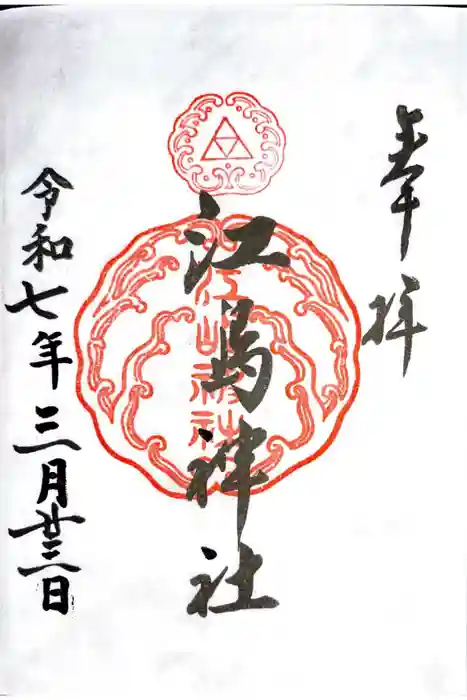 奉拝
江島神社
江嶋神社
令和七年三月廿三日